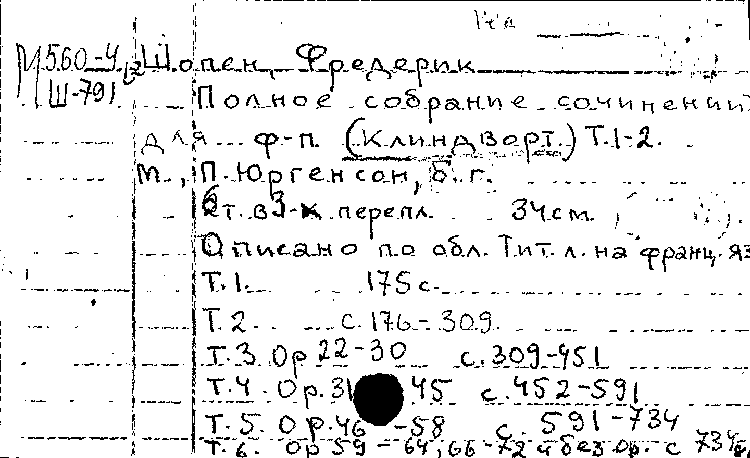 М560-4 Шопен, Фредерик
Ш-791
Полное собрание сочинений
для ф-п. (Клиндворт.) Т.1-2.
М., П. Юргенсон, б. г.
6т. в 3-х перепл. 34 см.
Описано по обл. Тит. л. на франц. яз
Т.1. 175 с.
Т.2. с. 176-309.
Т.3 Op 22-30 с. 309-451
Т.4. Op. 31 45 с. 452-591
Т.5. Op. 46-58 с. 591-734
Т.6. Op 59-64, 66-72 и без Op. с 734